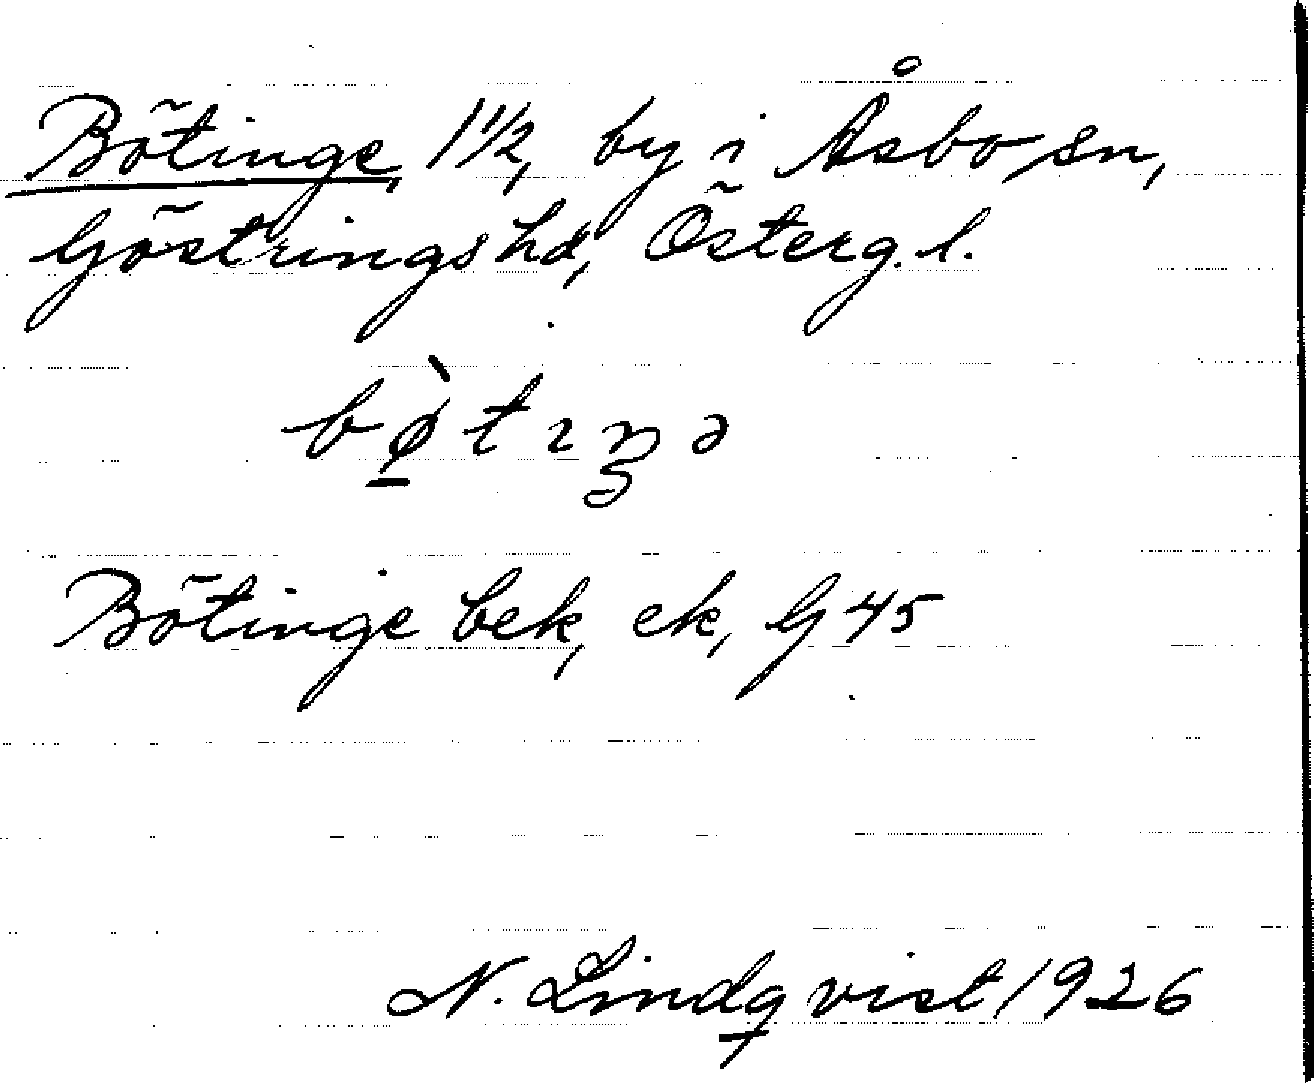 Bötinge, 1 1/2, by i Åsbo sn,
Göstrings hd, Österg. l.
bø̱̀tɪŋə
Bötinge bek, ek, G 45
N. Lindqvist 1926